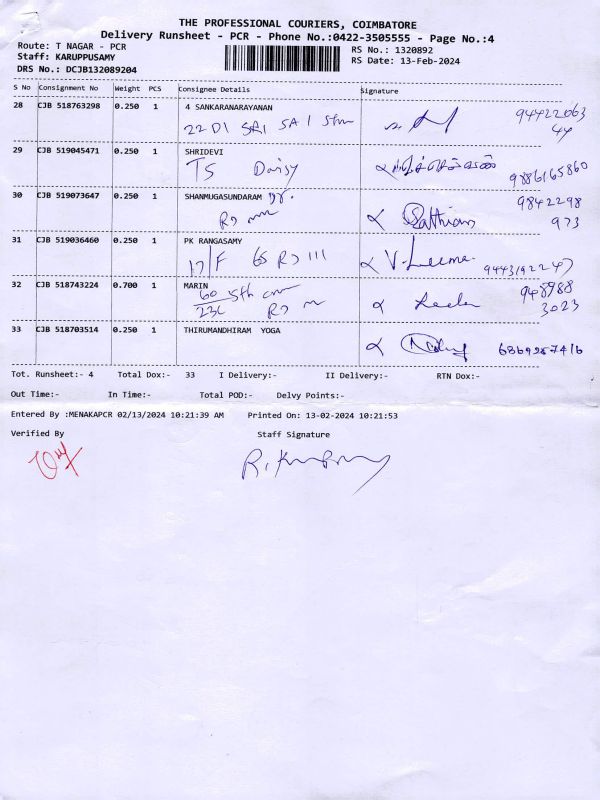 THE PROFESSIONAL COURIERS, COIMBATORE
Delivery Runsheet - PCR - Phone No.:0422-3505555 - Page No.:4
Route: T NAGAR - PCR
RS No.: 1320892
Staff: KARUPPUSAMY
RS Date: 13-Feb-2024
DRS No.: DCJB132089204
S No Consignment No Weight PCS Consignee Details Signature
28 CJB 518763298 0.250 1 4 SANKARANARAYANAN
22 D1 SRI SA I 94422063
44
29 CJB 519045471 0.250 1 SHRIDEVI
TS Daisy 9886165860
30 CJB 519073647 0.250 1 SHANMUGASUNDARAM Dr. 9842298
Sathian 973
31 CJB 519036460 0.250 1 PK RANGASAMY
17/F 65 III V. Leema
32 CJB 518743224 0.700 1 MARIN 948988
60 5th 3023
23C
33 CJB 518703514 0.250 1 THIRUMANDHIRAM YOGA
Tot. Runsheet:- 4 Total Dox:- 33 I Delivery:- II Delivery:- RTN Dox:-
Out Time:- In Time:- Total POD:- Delvy Points:-
Entered By :MENAKAPCR 02/13/2024 10:21:39 AM Printed On: 13-02-2024 10:21:53
Verified By Staff Signature